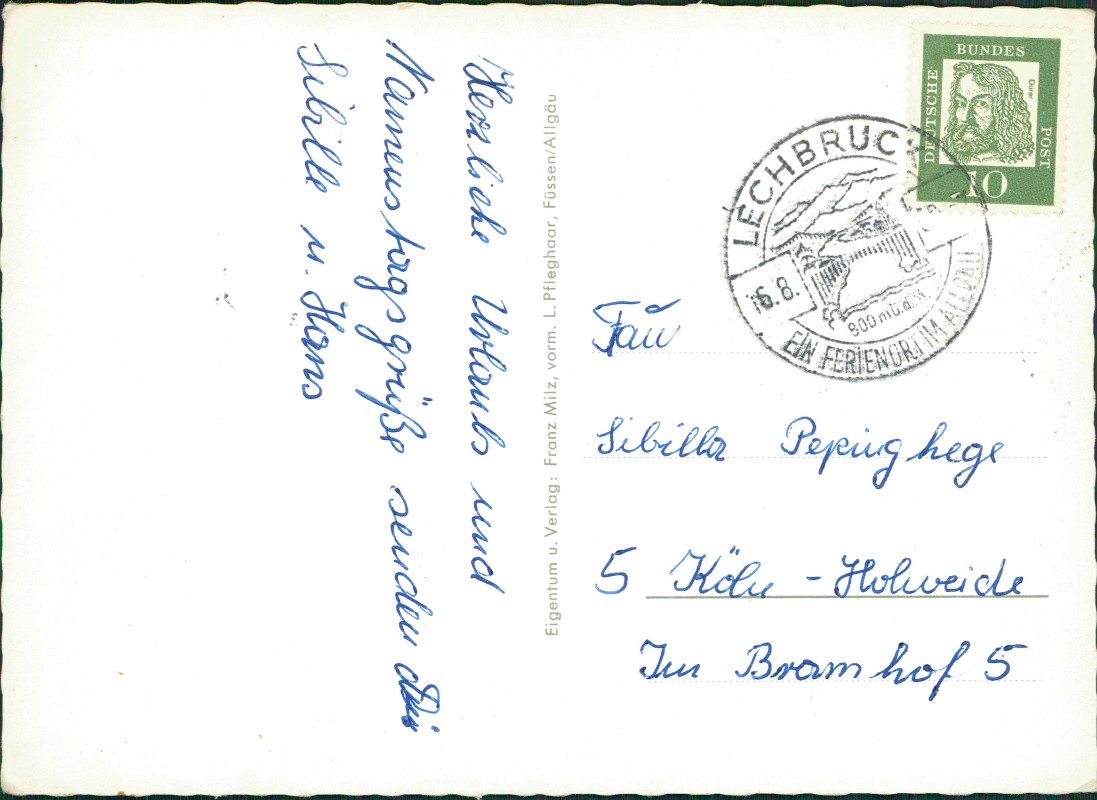 Herzliche Urlaubs und
Namenstagsgrüße senden dir
Sibille u. Hans
Eigentum u. Verlag: Franz Milz, vorm. L. Pfleghaar, Füssen/Allgäu
DEUTSCHE
BUNDES
POST
Dürer
10
LECHBRUCK
16.8.
800 m ü. d. M.
EIN FERIENORT IM ALLGÄU
Frau
Sibilla Pepinghege
5 Köln - Holweide
Im Bramhof 5